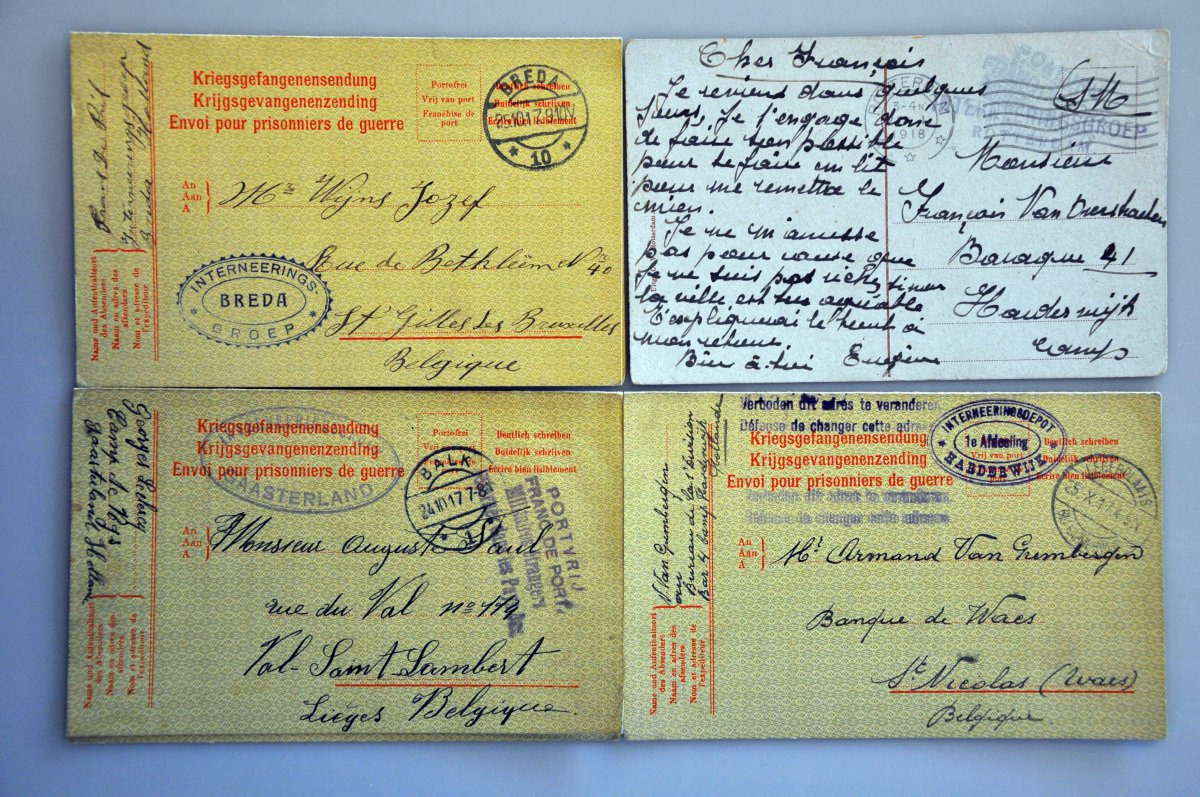 Kriegsgefangenensendung
Krijgsgevangenenzending
Envoi pour prisonniers de guerre
Portofrei
Vrij van port
Franchise de
port
Deutlich schreiben
Duidelijk schrijven
Ecrire bien lisiblement
BREDA
25.10.17. 9-10V
10
An
Aan
A
Mr Wijns Jozef
Rue de Bethléem No 40
St Gilles des Bruxelles
Belgique
INTERNEERINGS-
BREDA
GROEP
Name und Aufenthaltsort
des Absenders
Naam en adres des
afzenders
Nom et adresse de
l'expéditeur
Breda
Cher François
Je reviens dans quelques
jours. Je t'engage donc
de faire ton possible
pour te faire un lit
pour me remettre le
mien.
Je ne m'amuse
pas pour cause que
je ne suis pas riche, sinon
la ville est très agréable
T'expliquerai le tout à
mon retour.
Bien à toi Eugène
3-4
1918
INTERNEERINGSGROEP
ROTTERDAM
SM
Monsieur
François Van
Baraque 41
Harderwijk
Camp
Kriegsgefangenensendung
Krijgsgevangenenzending
Envoi pour prisonniers de guerre
Portofrei
Vrij van port
Deutlich schreiben
Duidelijk schrijven
Ecrire bien lisiblement
GAASTERLAND
BALK
24.10.17. 7-8
PORTVRIJ
FRANC DE PORT
Militaires étrangers
internés dans les Pays-Bas
An
Aan
A
Monsieur Auguste Paul
rue du Val no 179
Val-Saint Lambert
Liéges Belgique.
Georges
Camp de Rijs
Gaasterland Hollande
Name und Aufenthaltsort
des Absenders
Naam en adres des
afzenders
Nom et adresse de
l'expéditeur
Verboden dit adres te veranderen
Défense de changer cette adresse
Kriegsgefangenensendung
Krijgsgevangenenzending
Envoi pour prisonniers de guerre
Verboden dit adres te veranderen
Défense de changer cette adresse
INTERNEERINGSDEPOT
1e Afdeeling
HARDERWIJK
Vrij van port
Deutlich schreiben
Duidelijk schrijven
Ecrire bien lisiblement
An
Aan
A
Mr Armand Van Grembergen
Banque de Waes
St Nicolas (Waes)
Belgique.
Van Grembergen
au
Bureau de la 1e Division
Bar 4 Camp Harderwijk
Hollande
Name und Aufenthaltsort
des Absenders
Naam en adres des
afzenders
Nom et adresse de
l'expéditeur